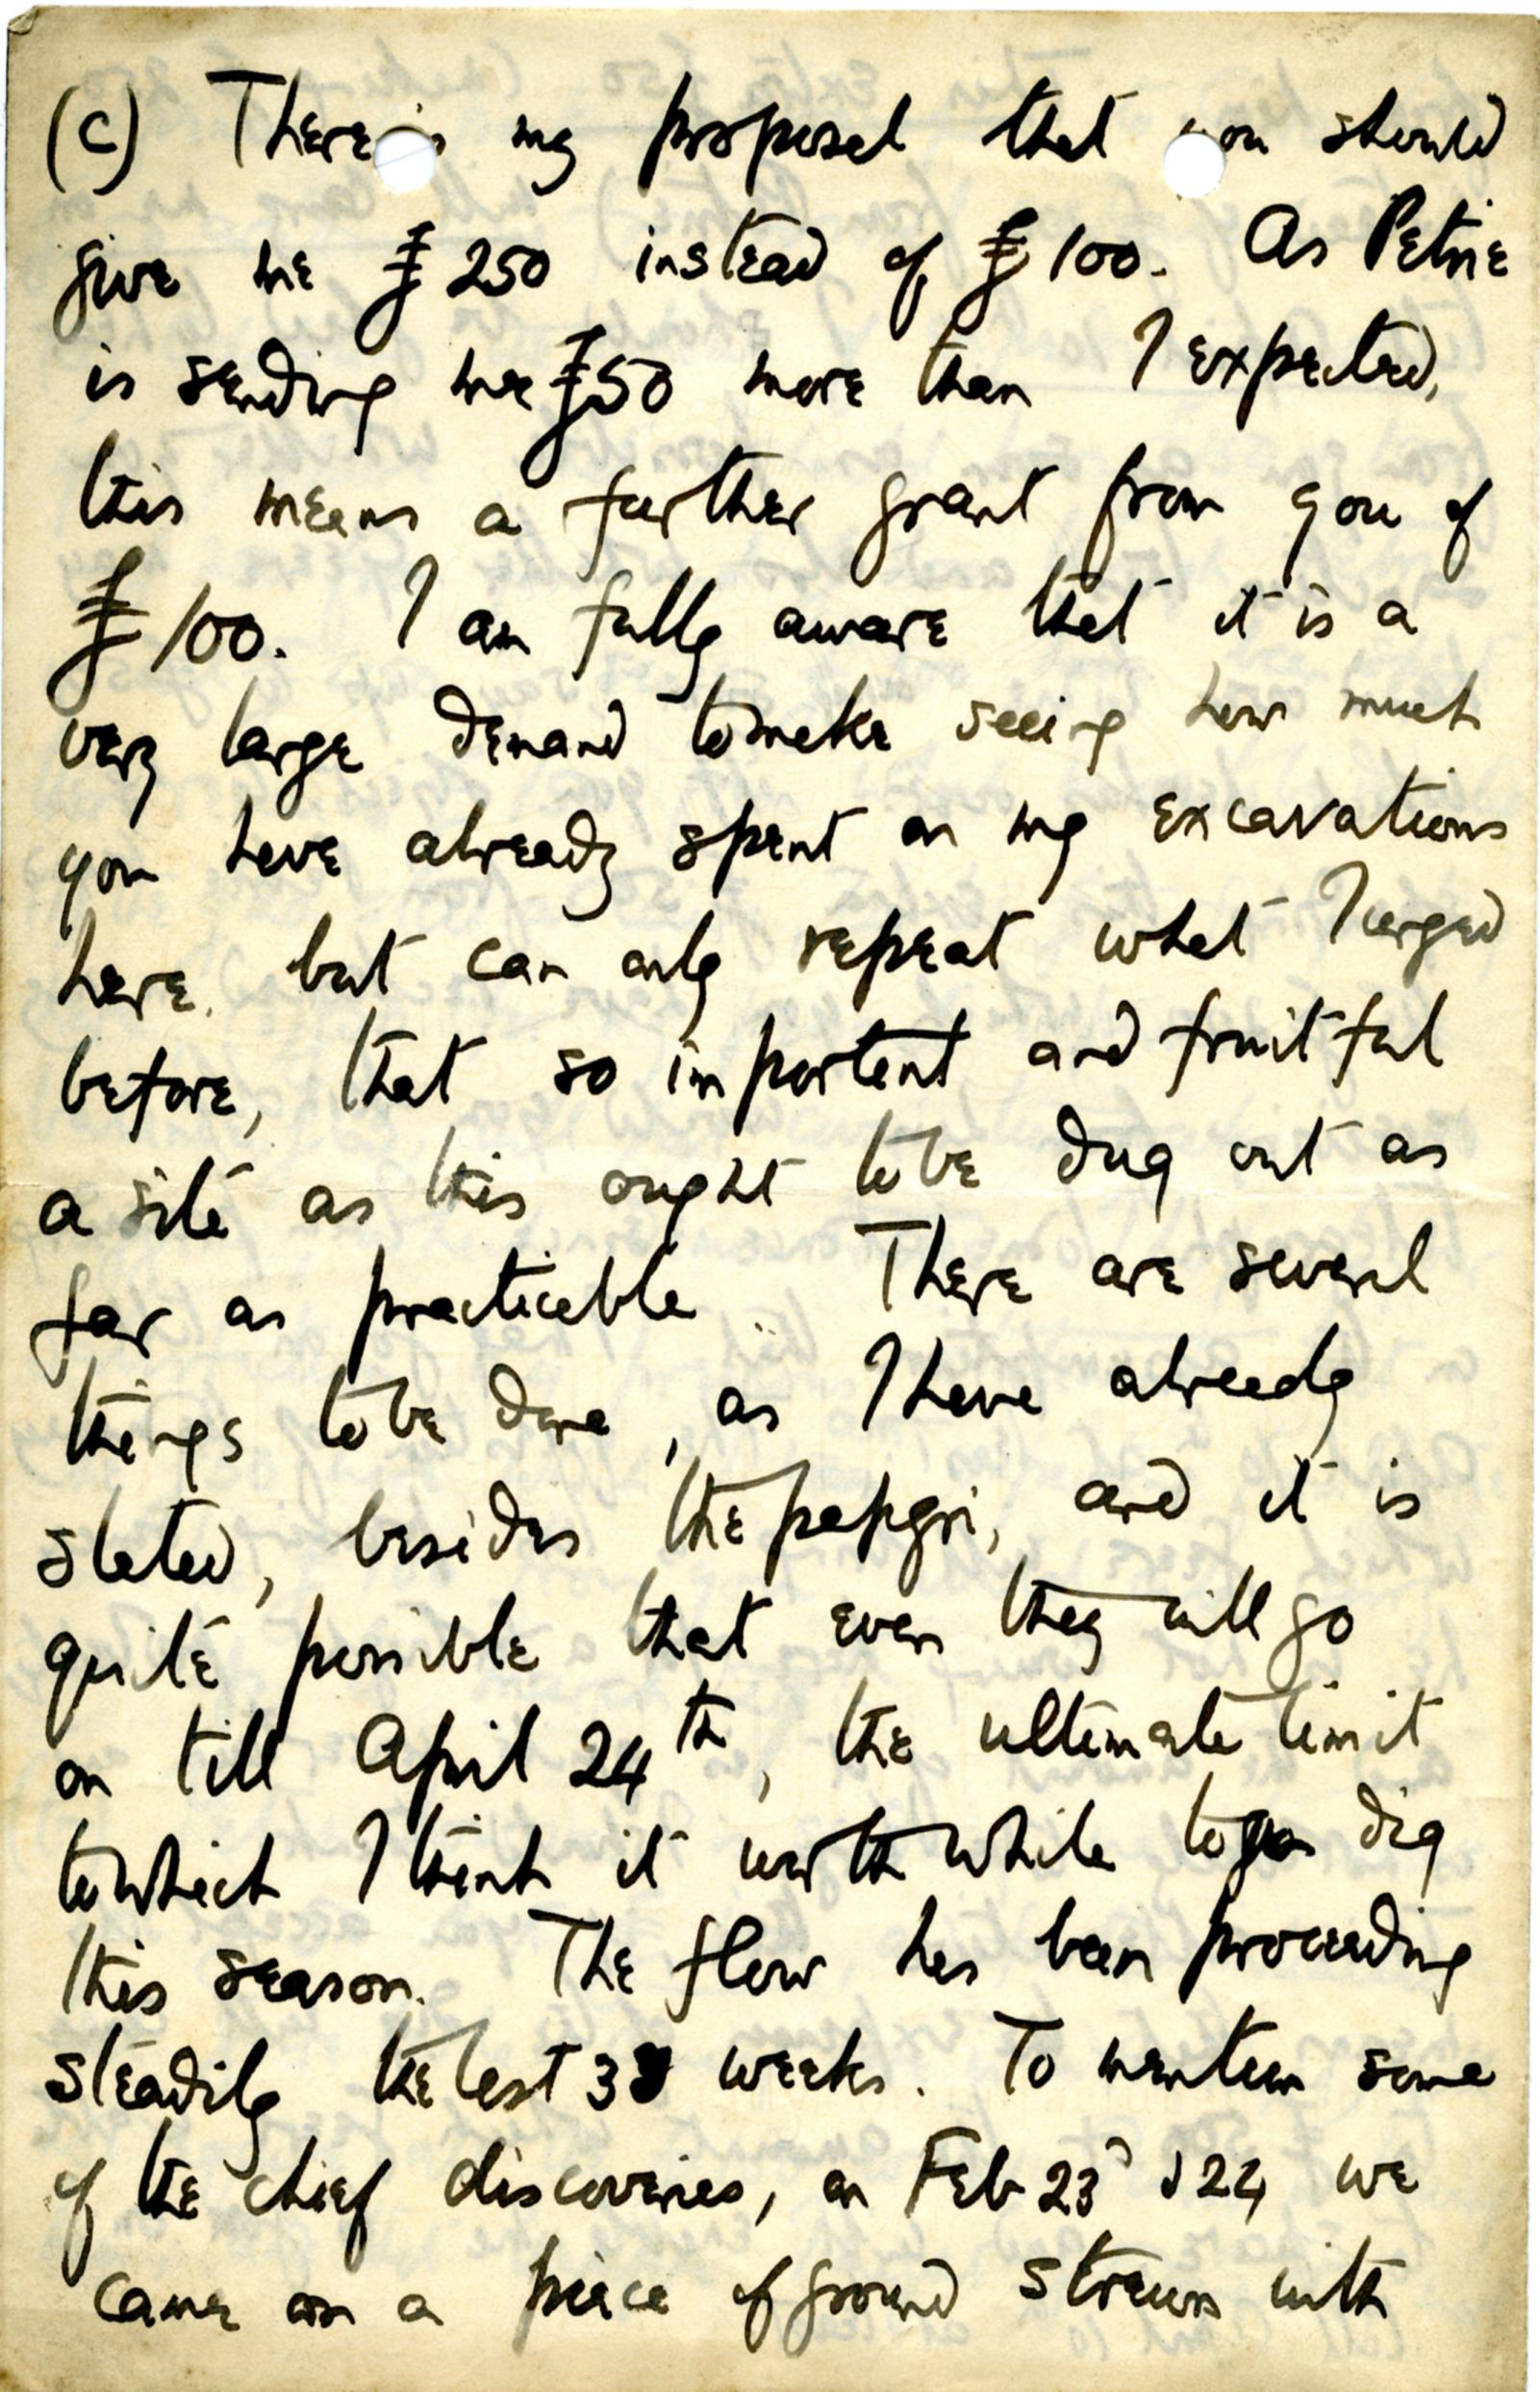 (c) There is my proposal that you should
give me £250 instead of £100. As Petrie
is sending me £50 more than I expected,
this means a further grant from you of
£100. I am fully aware that it is a
very large demand to make seeing how much
you have already spent on my excavations
here, but can only repeat what I urged
before, that so important and fruitful
a site as this ought to be dug out as
far as practicable. There are several
things to be done, as I have already
stated, besides the papyri, and it is
quite possible that even they will go
on till April 24th, the ultimate limit
to which I think it worth while to dig
this season. The flow has been proceeding
steadily the last 3 weeks. To mention some
of the chief discoveries, on Feb 23 & 24 we
came on a piece of ground strewn with